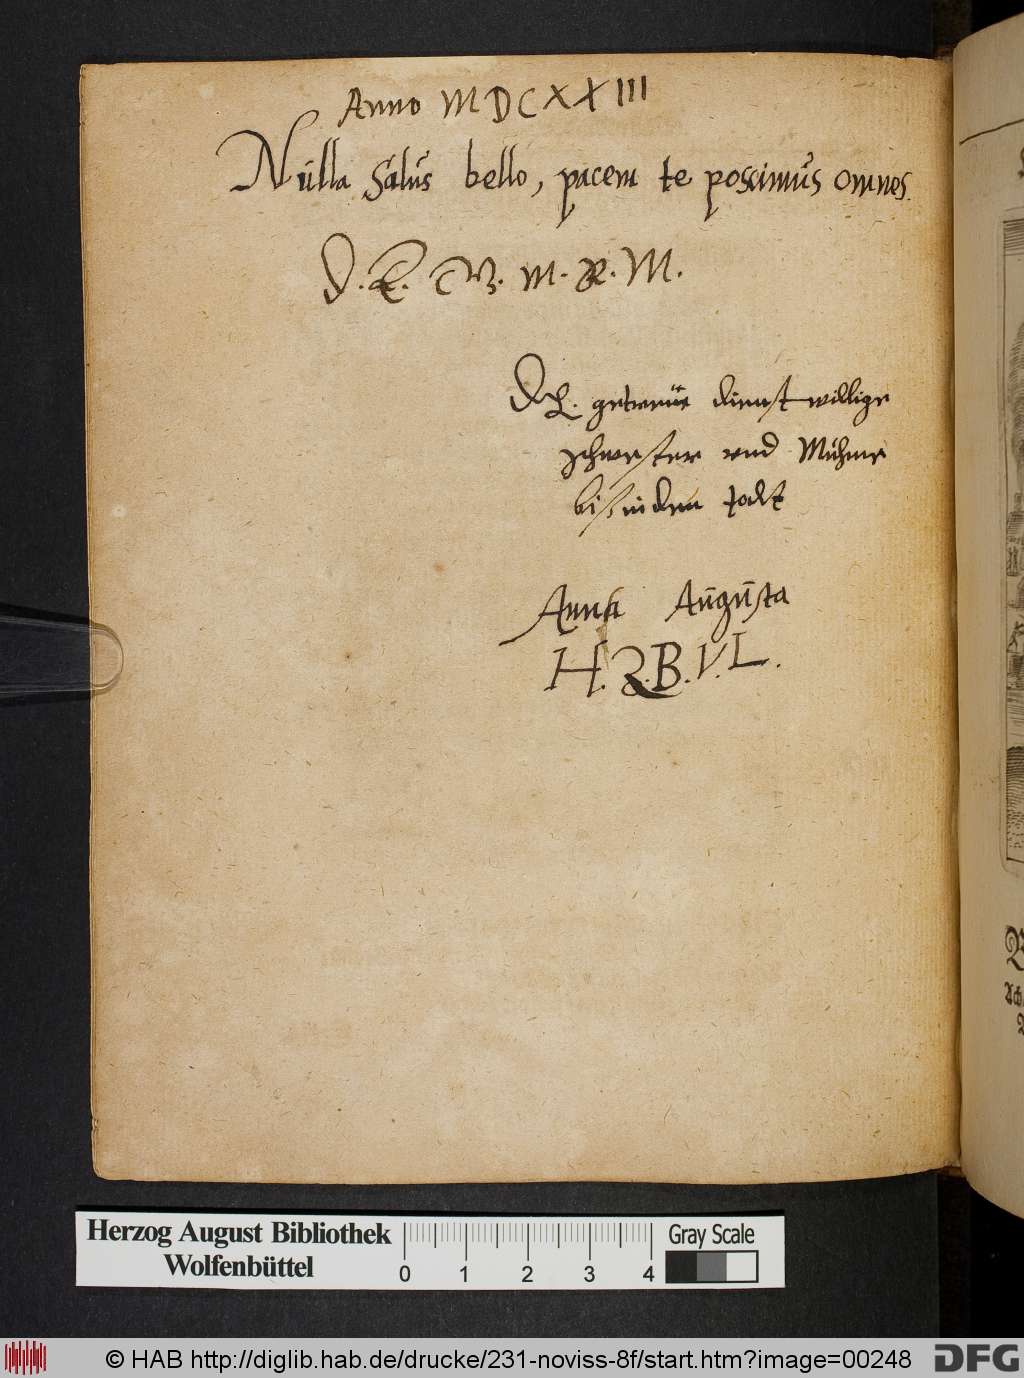 Anno MDCXXIII
Nulla salus bello, pacem te poscimus omnes.
D. E. W. M. R. M.
E. getreüe dienstwillige
schwester vnd Mühme
biß in den todt
Anna Augusta
H. Z. B. V. L.
Herzog August Bibliothek
Wolfenbüttel
0 1 2 3 4
Gray Scale
© HAB http://diglib.hab.de/drucke/231-noviss-8f/start.htm?image=00248
DFG